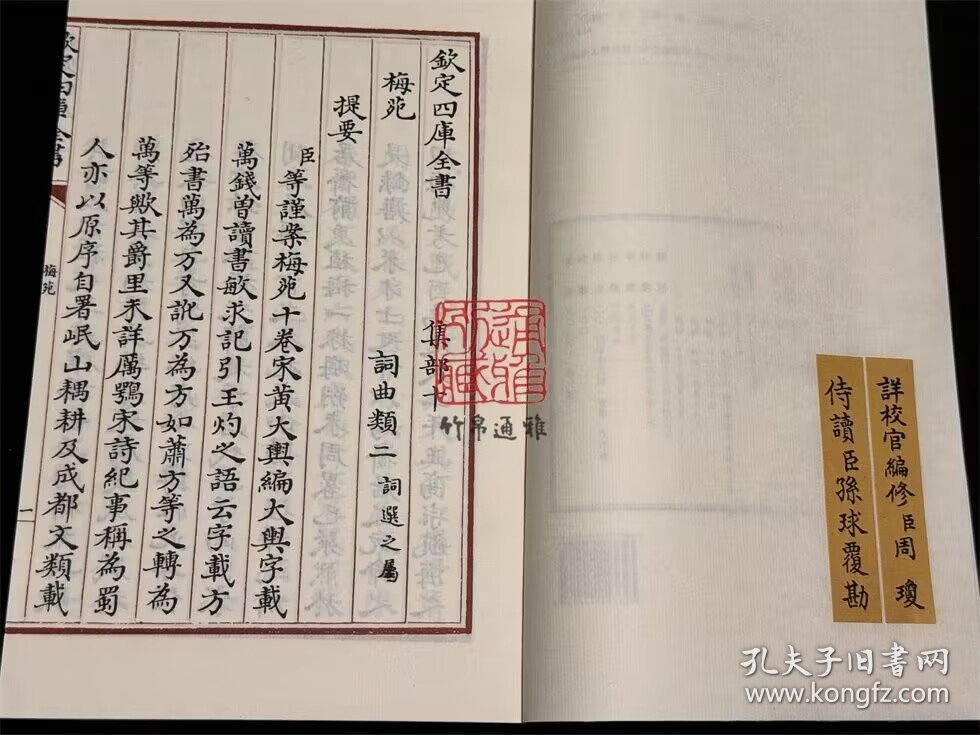 詳校官編修臣周瓊
侍讀臣孫球覆勘
欽定四庫全書
集部十
梅苑
詞曲類二 詞選之屬
提要
臣等謹案梅苑十卷宋黃大輿編大輿字載
萬錢曾讀書敏求記引王灼之語云字載方
殆書萬為万又訛万為方如蕭方等之轉為
萬等歟其爵里未詳厲鶚宋詩紀事稱為蜀
人亦以原序自署岷山耦耕及成都文類載
欽定四庫全書
梅苑
一
竹帛通雅
孔夫子旧书网
www.kongfz.com